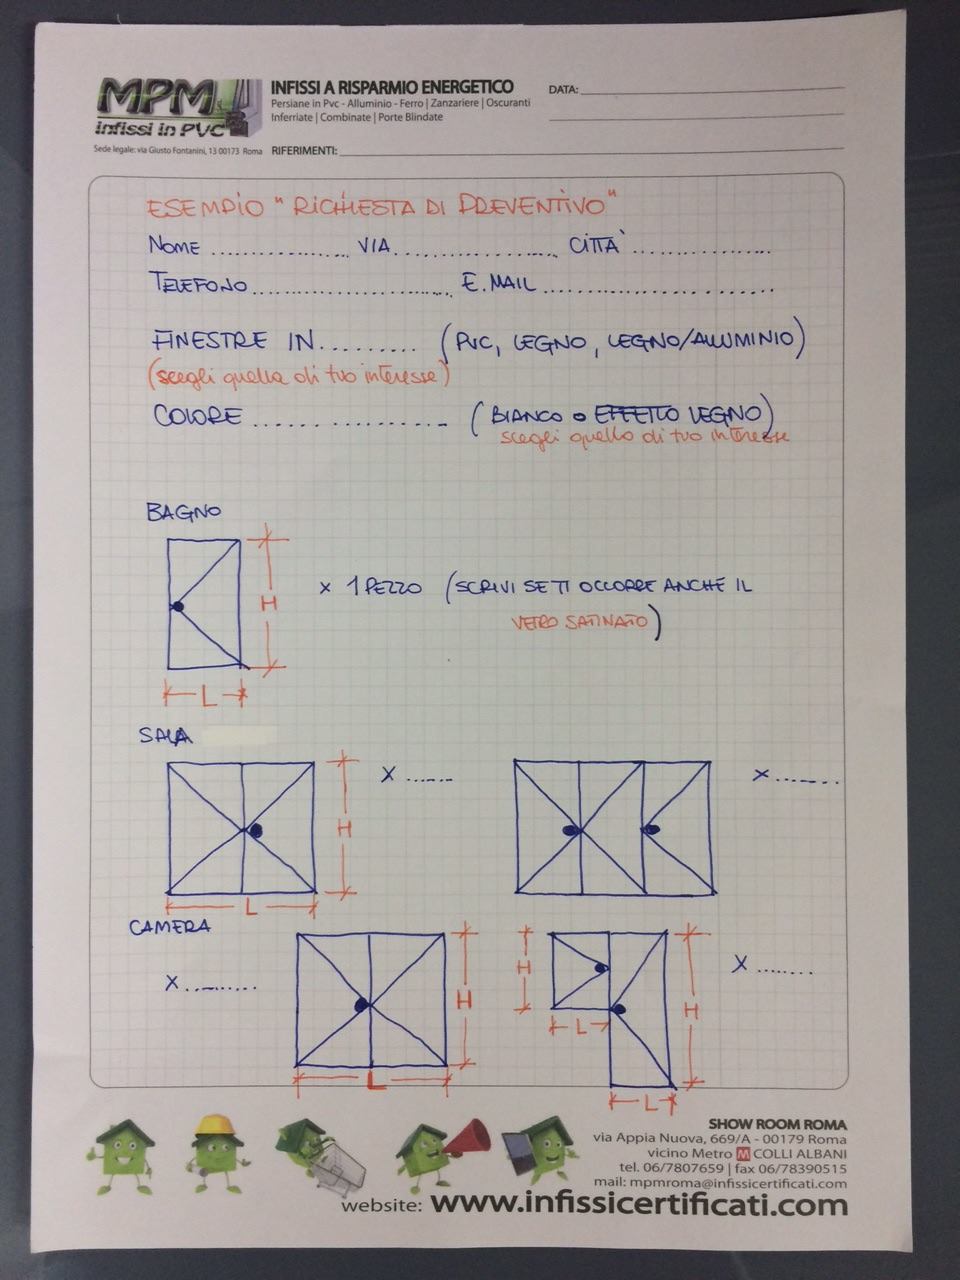 MPM
infissi in PVC
INFISSI A RISPARMIO ENERGETICO
Persiane in Pvc - Alluminio - Ferro | Zanzariere | Oscuranti
Inferriate | Combinate | Porte Blindate
DATA:
Sede legale: via Giusto Fontanini, 13 00173 Roma
RIFERIMENTI:
ESEMPIO "RICHIESTA DI PREVENTIVO"
NOME ................. VIA ................. CITTÀ .................
TELEFONO ................. E.MAIL .................
FINESTRE IN ......... (PVC, LEGNO, LEGNO/ALLUMINIO)
(scegli quella di tuo interesse)
COLORE ................. (BIANCO O EFFETTO LEGNO)
scegli quello di tuo interesse
BAGNO
H
L
x 1 PEZZO (SCRIVI SE TI OCCORRE ANCHE IL
VETRO SATINATO)
SALA
X .......
H
L
X .......
CAMERA
X .........
H
L
H
L
H
L
X .......
SHOW ROOM ROMA
via Appia Nuova, 669/A - 00179 Roma
vicino Metro M COLLI ALBANI
tel. 06/7807659 | fax 06/78390515
mail: mpmroma@infissicertificati.com
website: www.infissicertificati.com